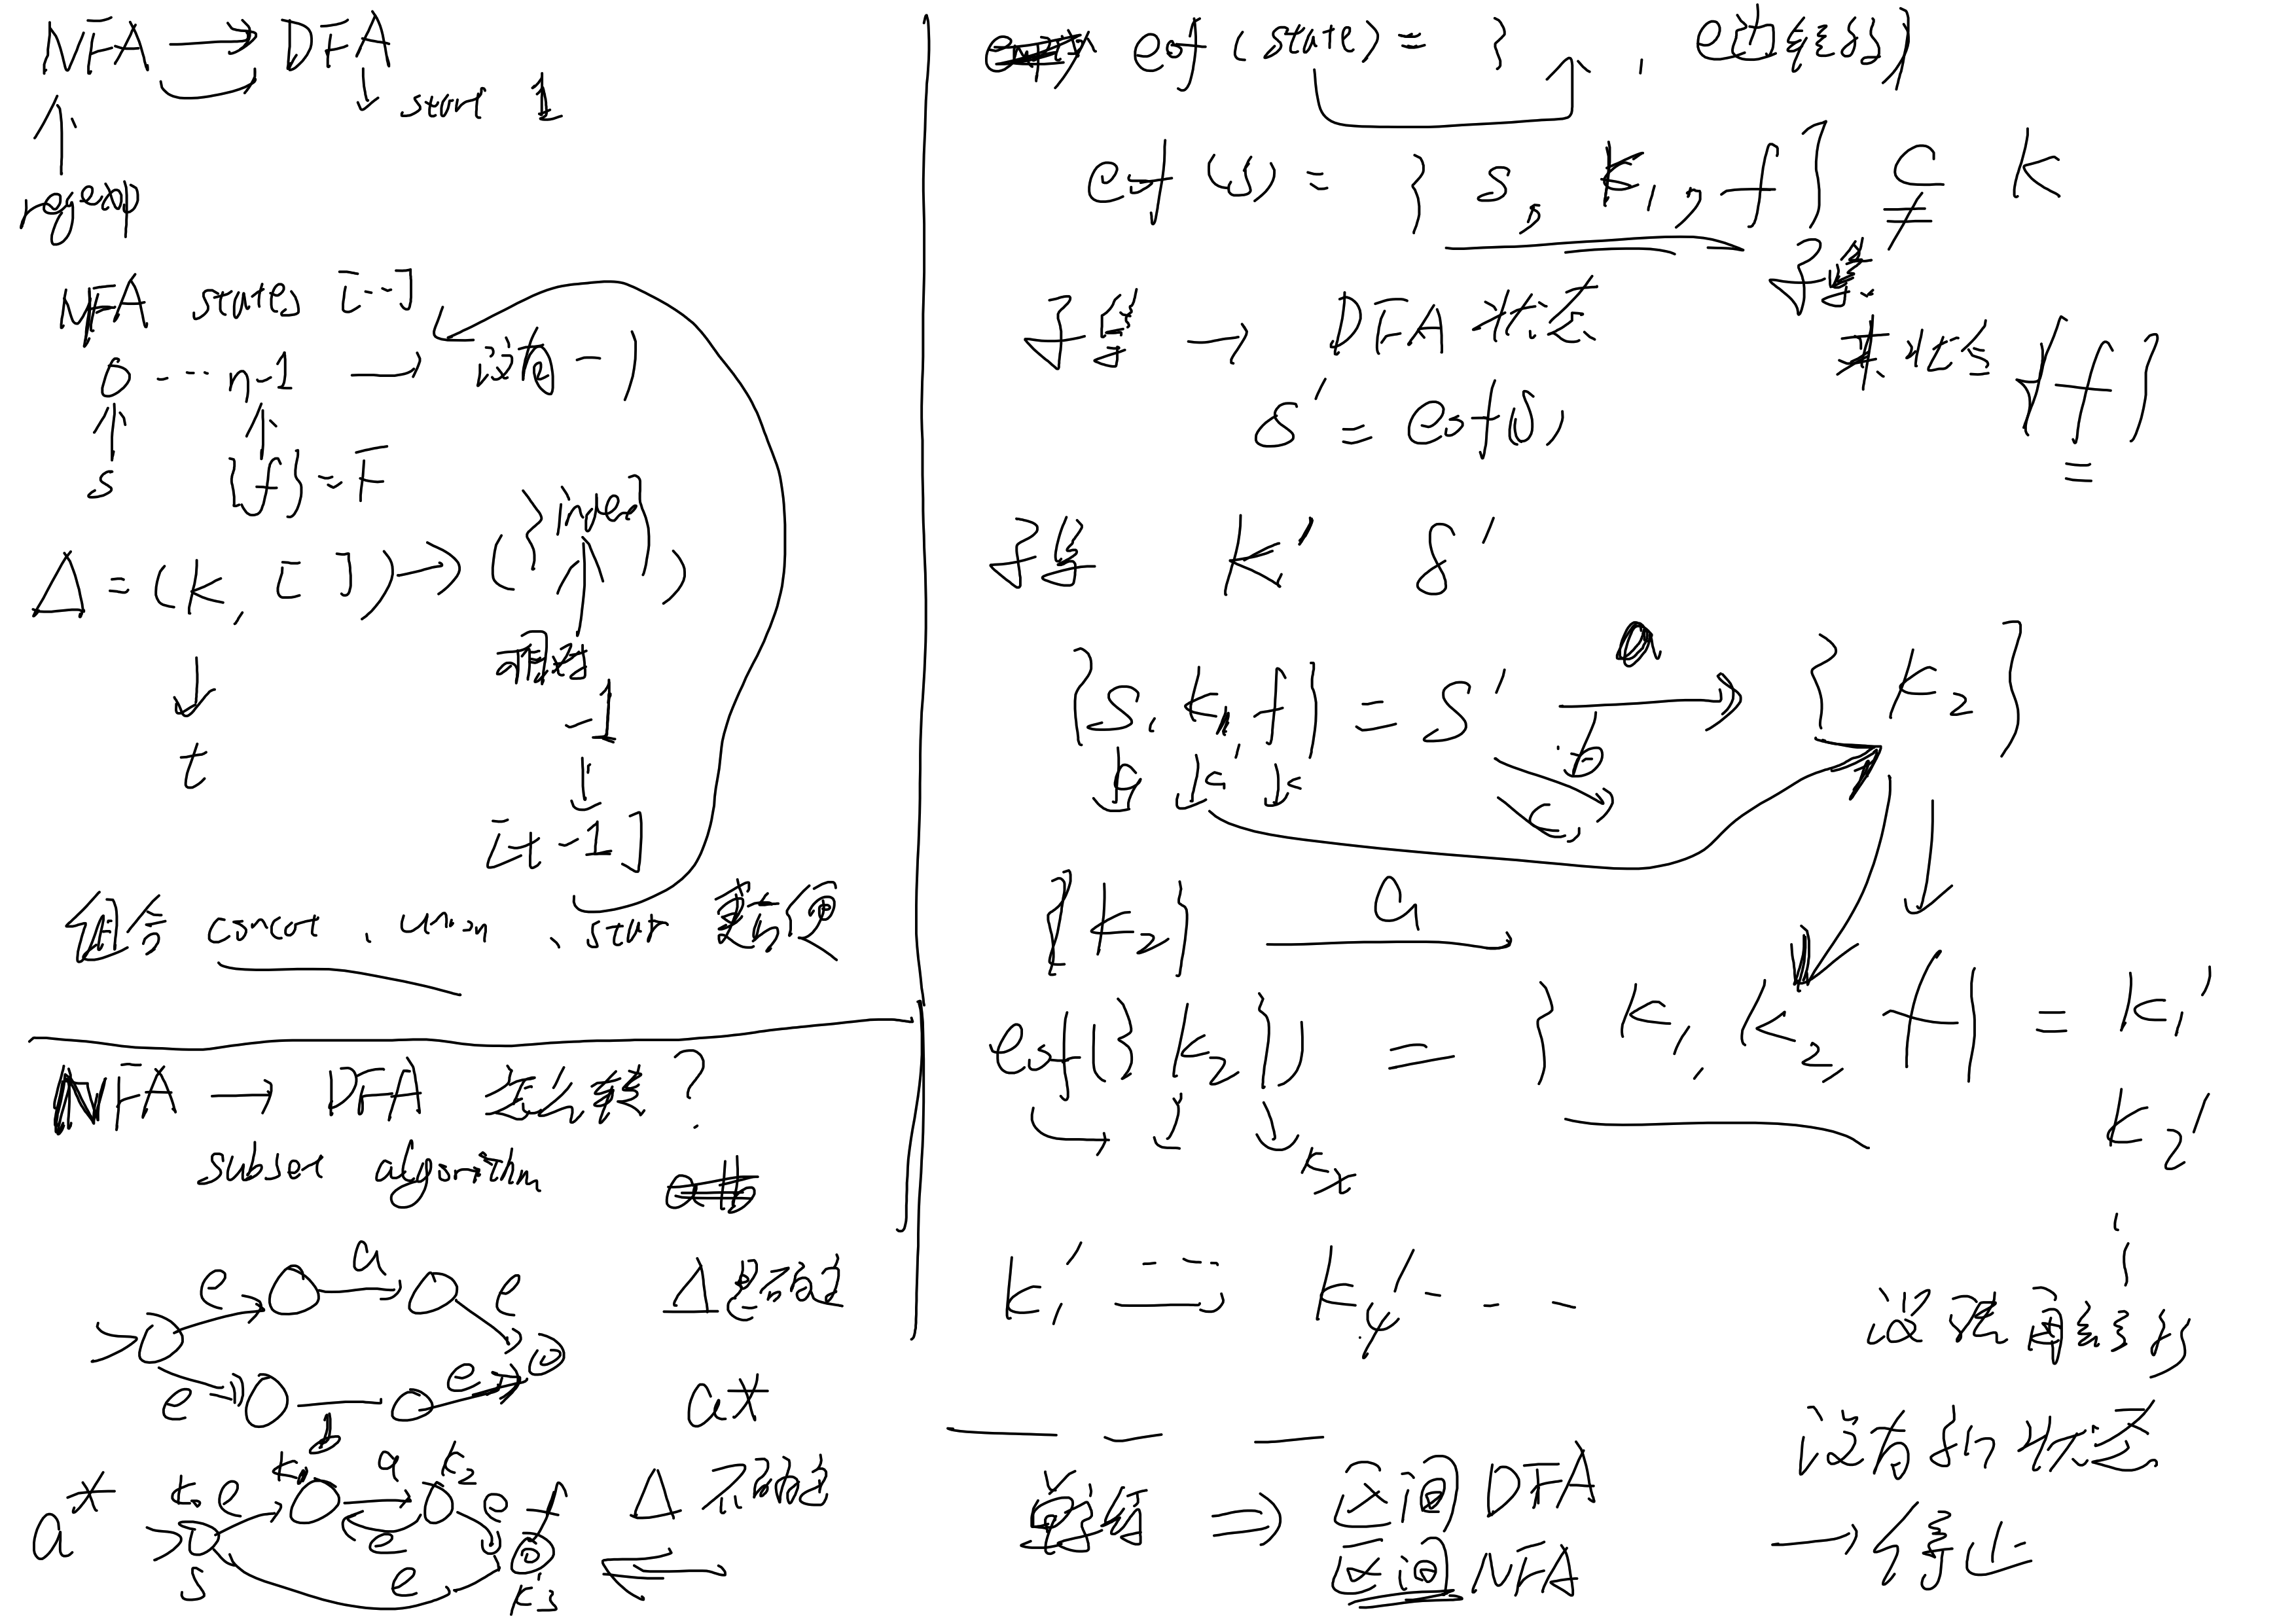 NFA → DFA
↓ start 1
↑
regexp
NFA states [--]
0 --- n-1 → 没有-1
s {f} = F
Δ = (k, [ ]) → ({index})
-1
[+ -1]
t
组合 concat, union, star 更方便
NFA → DFA 怎么转?
subset algorithm
e a e
Δ
e b e
a*
a* e k1 a k2 e f
s e e k3
Δ 不确定
esf (state) = { }, e
esf (s) = { s, k1, f } ⊊ K
子集
子集 → DFA 状态
末状态 {f}
s' = esf(s)
子集 K' δ'
{s, k1, f} = s' → { k2 }
b
c
{k2} a →
esf({k2}) = { k1, k2, f } = k1'
k2'
kx
k1' ⇒ ky' - - -
没有新状态
→ 停止
⇒ 区间 DFA
区间 NFA